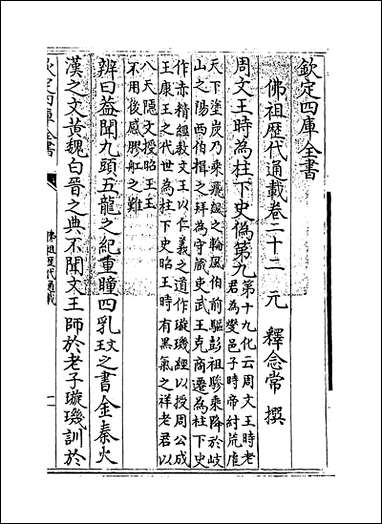 欽定四庫全書
佛祖歷代通載卷二十二　元　釋念常　撰
周文王時為柱下史偽第九
第十九化云周文王時老
君為爕邑子時帝紂荒虐
天下塗炭乃乘飛飇之輪風伯前驅彭祖驂乘降於岐
山之陽西伯揖之拜為守藏史武王克商遷為柱下史
作赤精經教文王以仁義之道作璇璣經以授周公成
王康王之代世為柱下史昭王時有黑氣之祥老君以
八天隱文授昭王王
不用後感膠舡之難
辨曰葢聞九頭五龍之紀重瞳四乳之書
文王
金秦火
漢之文黄魏白晉之典不聞文王師於老子璇璣訓於
欽定四庫全書
佛祖歷代通載
一